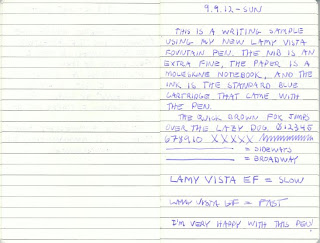 9.9.12 - SUN
THIS IS A WRITING SAMPLE
USING MY NEW LAMY VISTA
FOUNTAIN PEN. THE NIB IS AN
EXTRA FINE, THE PAPER IS A
MOLESKINE NOTEBOOK, AND THE
INK IS THE STANDARD BLUE
CARTRIDGE THAT CAME WITH
THE PEN.
THE QUICK BROWN FOX JUMPS
OVER THE LAZY DOG. 012345
678910 XXXXX
= SIDEWAYS
= BROADWAY
LAMY VISTA EF = SLOW
LAMY VISTA EF = FAST
I'M VERY HAPPY WITH THIS PEN!